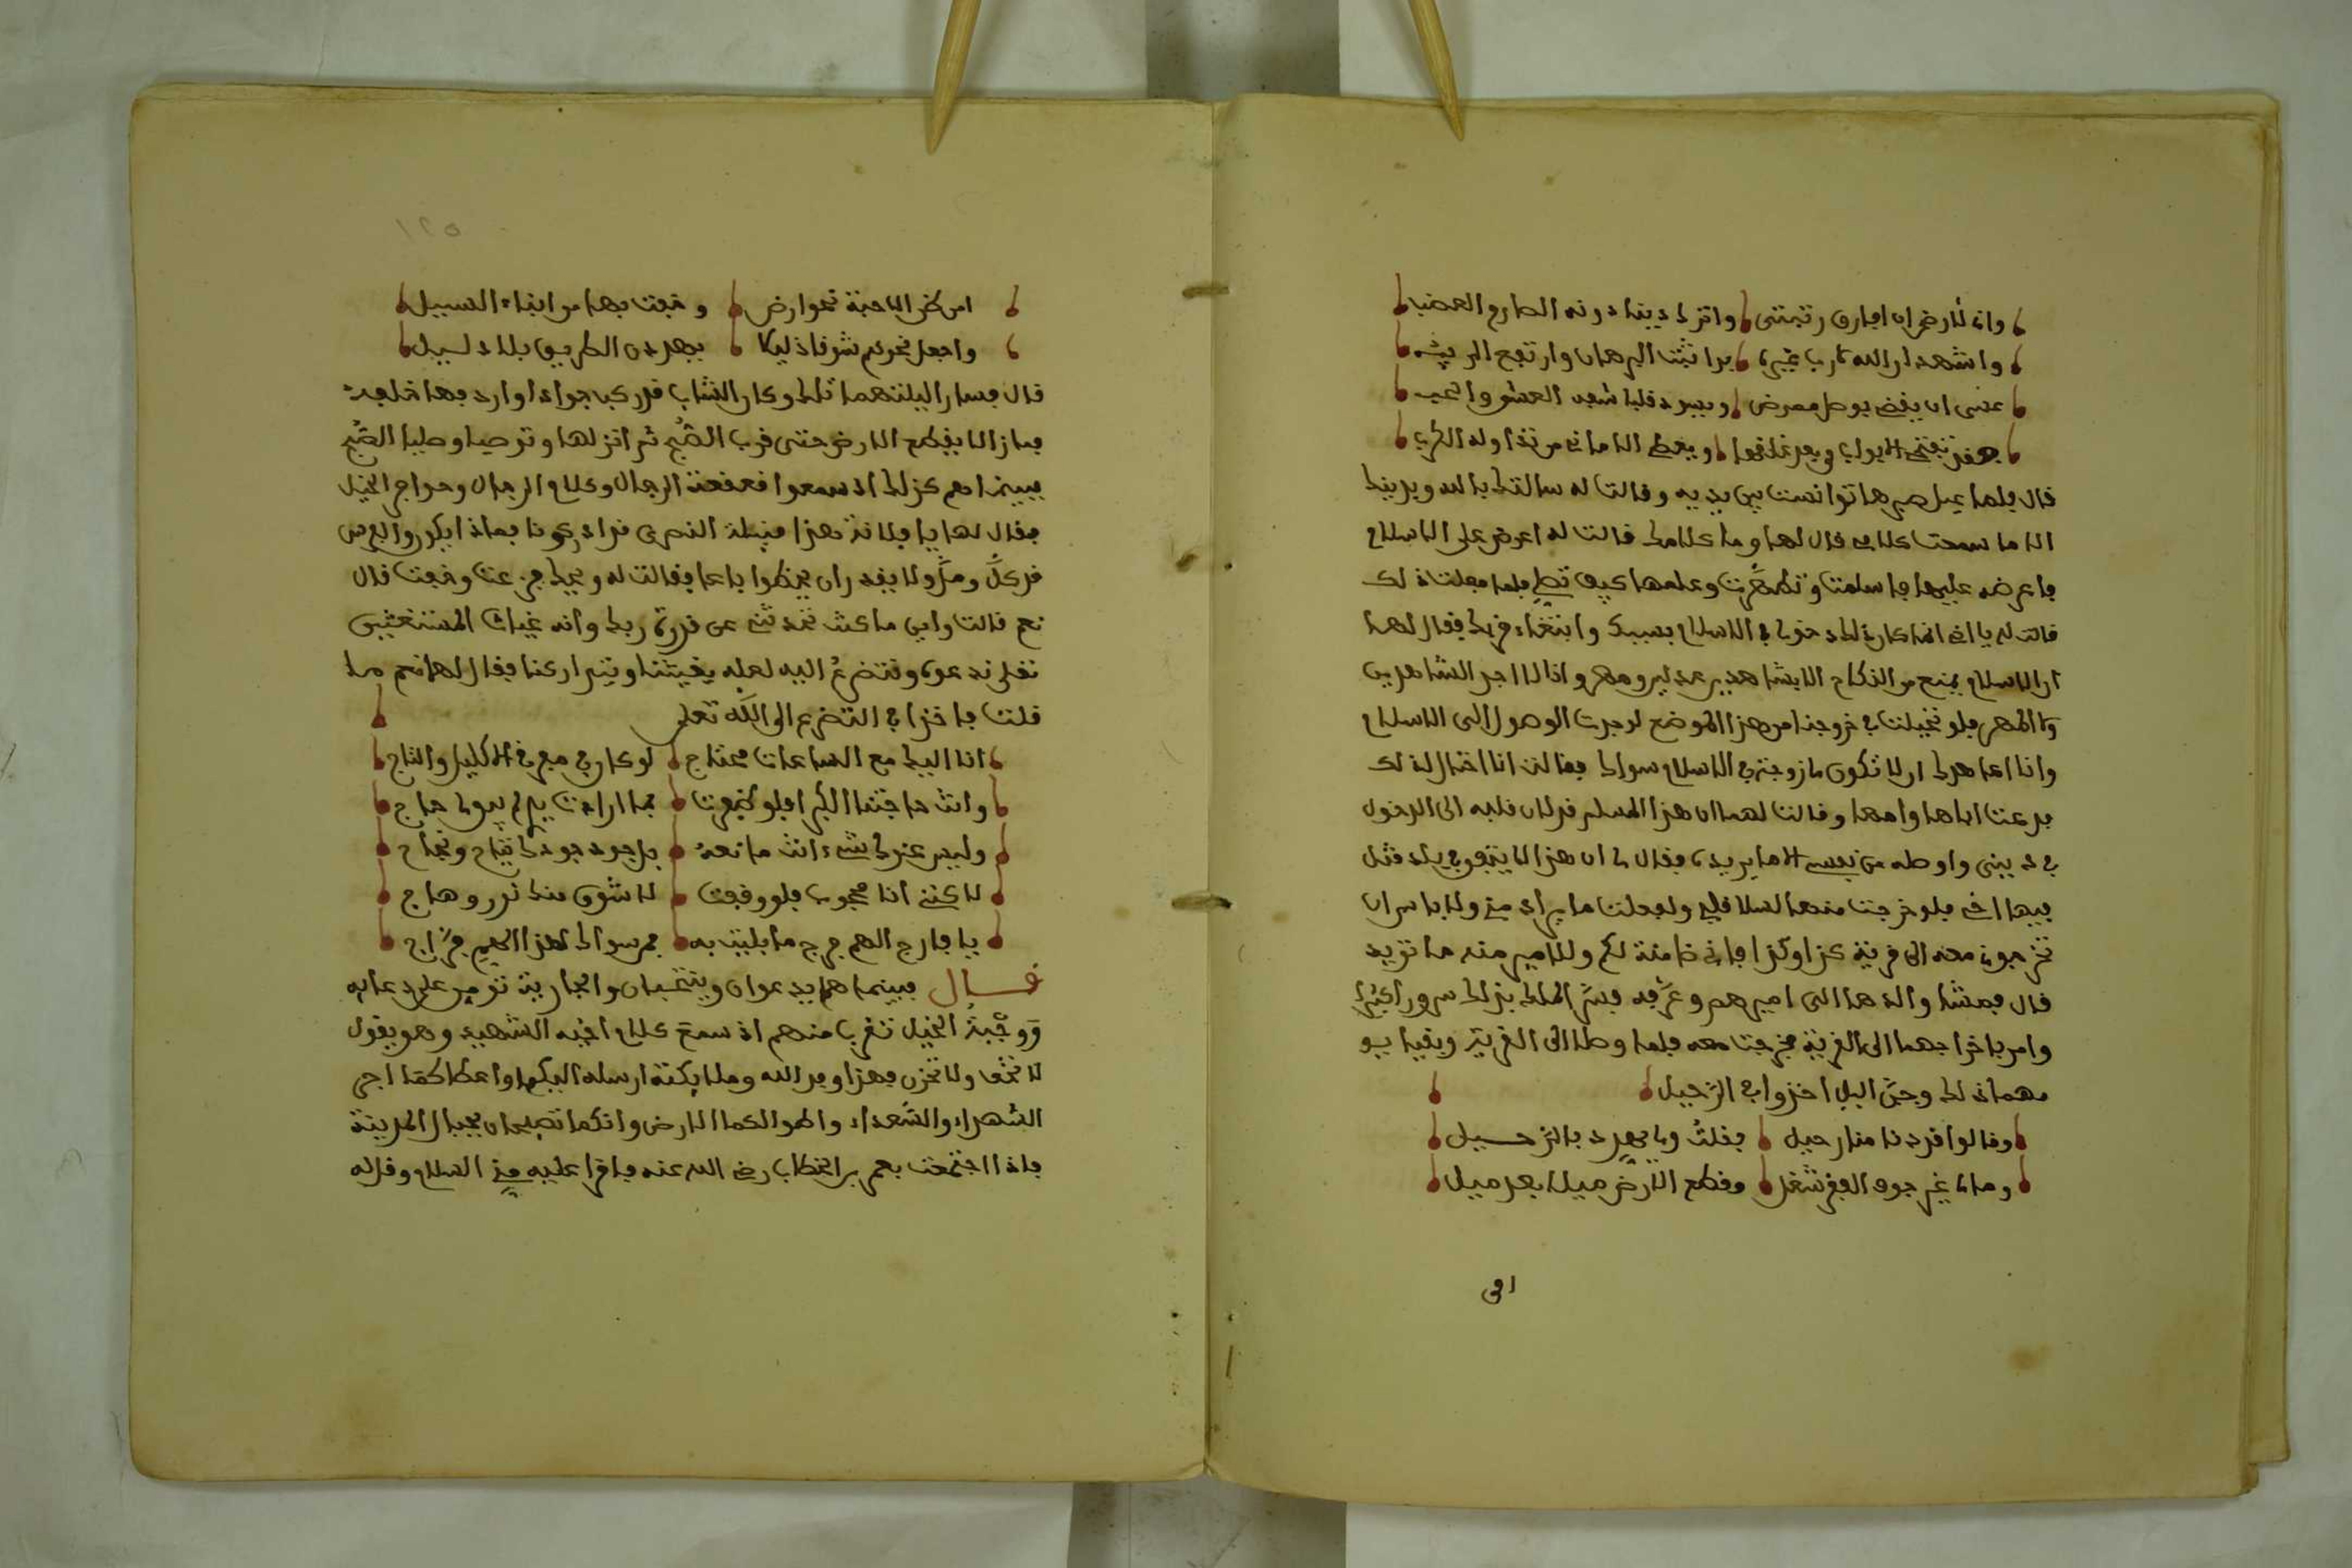 وانى لأرض ان افارق رتبتى واترك دينا دونه الصارم العضب
واشهد ان الله لا رب غيره بدا ثبت البرهان وارتفع الريب
عسى ان يقضى بوصل معرض ويبرد قلبا شفه العشق والحب
الابواب بعد ويعطى الامانى من تداوله الكرب
قال فلما عيل صبرها ترامت بين يديه وقالت له سالتك بالله وبدينك
الا ما سمعت كلامى قال لها وما كلامك قالت له اعرض على الاسلام
فاعرضه عليها فاسلمت وتطهرت وعلمها كيف تصلى فلما فعلت ذلك
قالت له يا اخى انما كان دخولى فى الاسلام بسببك وابتغاء قربك فقال لها
ان الاسلام يمنع من النكاح الا بشاهدين عدلين ومهر وانا لا اجد الشاهدين
ولا المهر فلو تحيلت فى خروجنا من هذا الموضع لرجوت الوصول الى الاسلام
وانا اعاهدك ان لا تكون لى زوجة فى الاسلام سواك فقالت انا احتال لذلك
فدعت اباها وامها وقالت لهما ان هذا المسلم قد لان قلبه الى الدخول
فى دينى واوصله من نفسى الى ما يريده فقال لى ان هذا لا يتفق فى بلد قتل
فيها اخى فلو خرجت منها لسلا قلبى ولفعلت ما يراد منى ولا باس ان
تخرجونى معه الى قرية كذا وكذا فانى ضامنة لكم وللامير منه ما تريد
قال فمشا والدها الى اميرهم وعرفه فسر الملك بذلك سرورا كثيرا
وامر باخراجهما الى القرية فخرجت معه فلما وصلا الى القرية وبقيا يو
مهما ذلك وجن اليل اخذوا فى الرحيل
وقالوا قد دنا منا رحيل فقلت وما يهدد بالرحيل
وما لى غير جوب القفر شغل وقطع الارض ميلا بعد ميل
اى
امن الاحبة نحو ارض وخفت بها من ابناء السبيل
واجعل نحوكم شوقا دليلا بهدى الطريق بلا دليل
قال فسارا ليلتهما تلك وكان الشاب قد ركب جوادا واردفها خلفه
فما زالا يقطع الارض حتى قرب الصبح ثم انزلها وتوضيا وصليا الصبح
فبينما هم كذلك اذ سمعوا قعقعة الرجال وكلام الرجال وحوافر الخيل
فقال لها يا فلانة هذا قبيلة النصرى قد ادركونا بماذا يكون والفرس
قد كل ومل ولا يقدر ان يخطوا باعا فقالت له ويحك فزعت وخفت قال
نعم قالت واين ما كنت تحدثنى عن قدرة ربك وانه غياث المستغثين
تعلى ندعوه ونتضرع اليه لعله يغيثنا ويتداركنا فقال لها نعم ما
قلت فاخذا فى التضرع الى الله تعلى
انا اليك مع الساعات محتاج لو كان فى مفرقى الاكليل والتاج
وانت حاجتنا الكبرا فلو ظفرت بما اردت يدى لم يبق لى حاج
وليس عندك شىء انت مانعه بل جود جودك ثجاج وثجاج
لاكننى انا محجوب فلو وفيت لا شوق منك نور وهاج
يا فارج الهم فرج ما بليت به فمن سواك لهذا الهم فراج
قال فبينما هما يدعوان وينتحبان والجارية تومن على دعائه
ووجبة الخيل تقرب منهم اذ سمع كلام اخيه الشهيد وهو يقول
لا تخف ولا تحزن فهذا وفد الله وملايكته ارسله اليكم واعطا كما اجر
الشهداء والسعداء واطوا لكما الارض وانكما تصبحان بجبال المدينة
فاذا اجتمعت بعمر بن الخطاب رضى الله عنه فاقرا عليه منى السلام وقل له